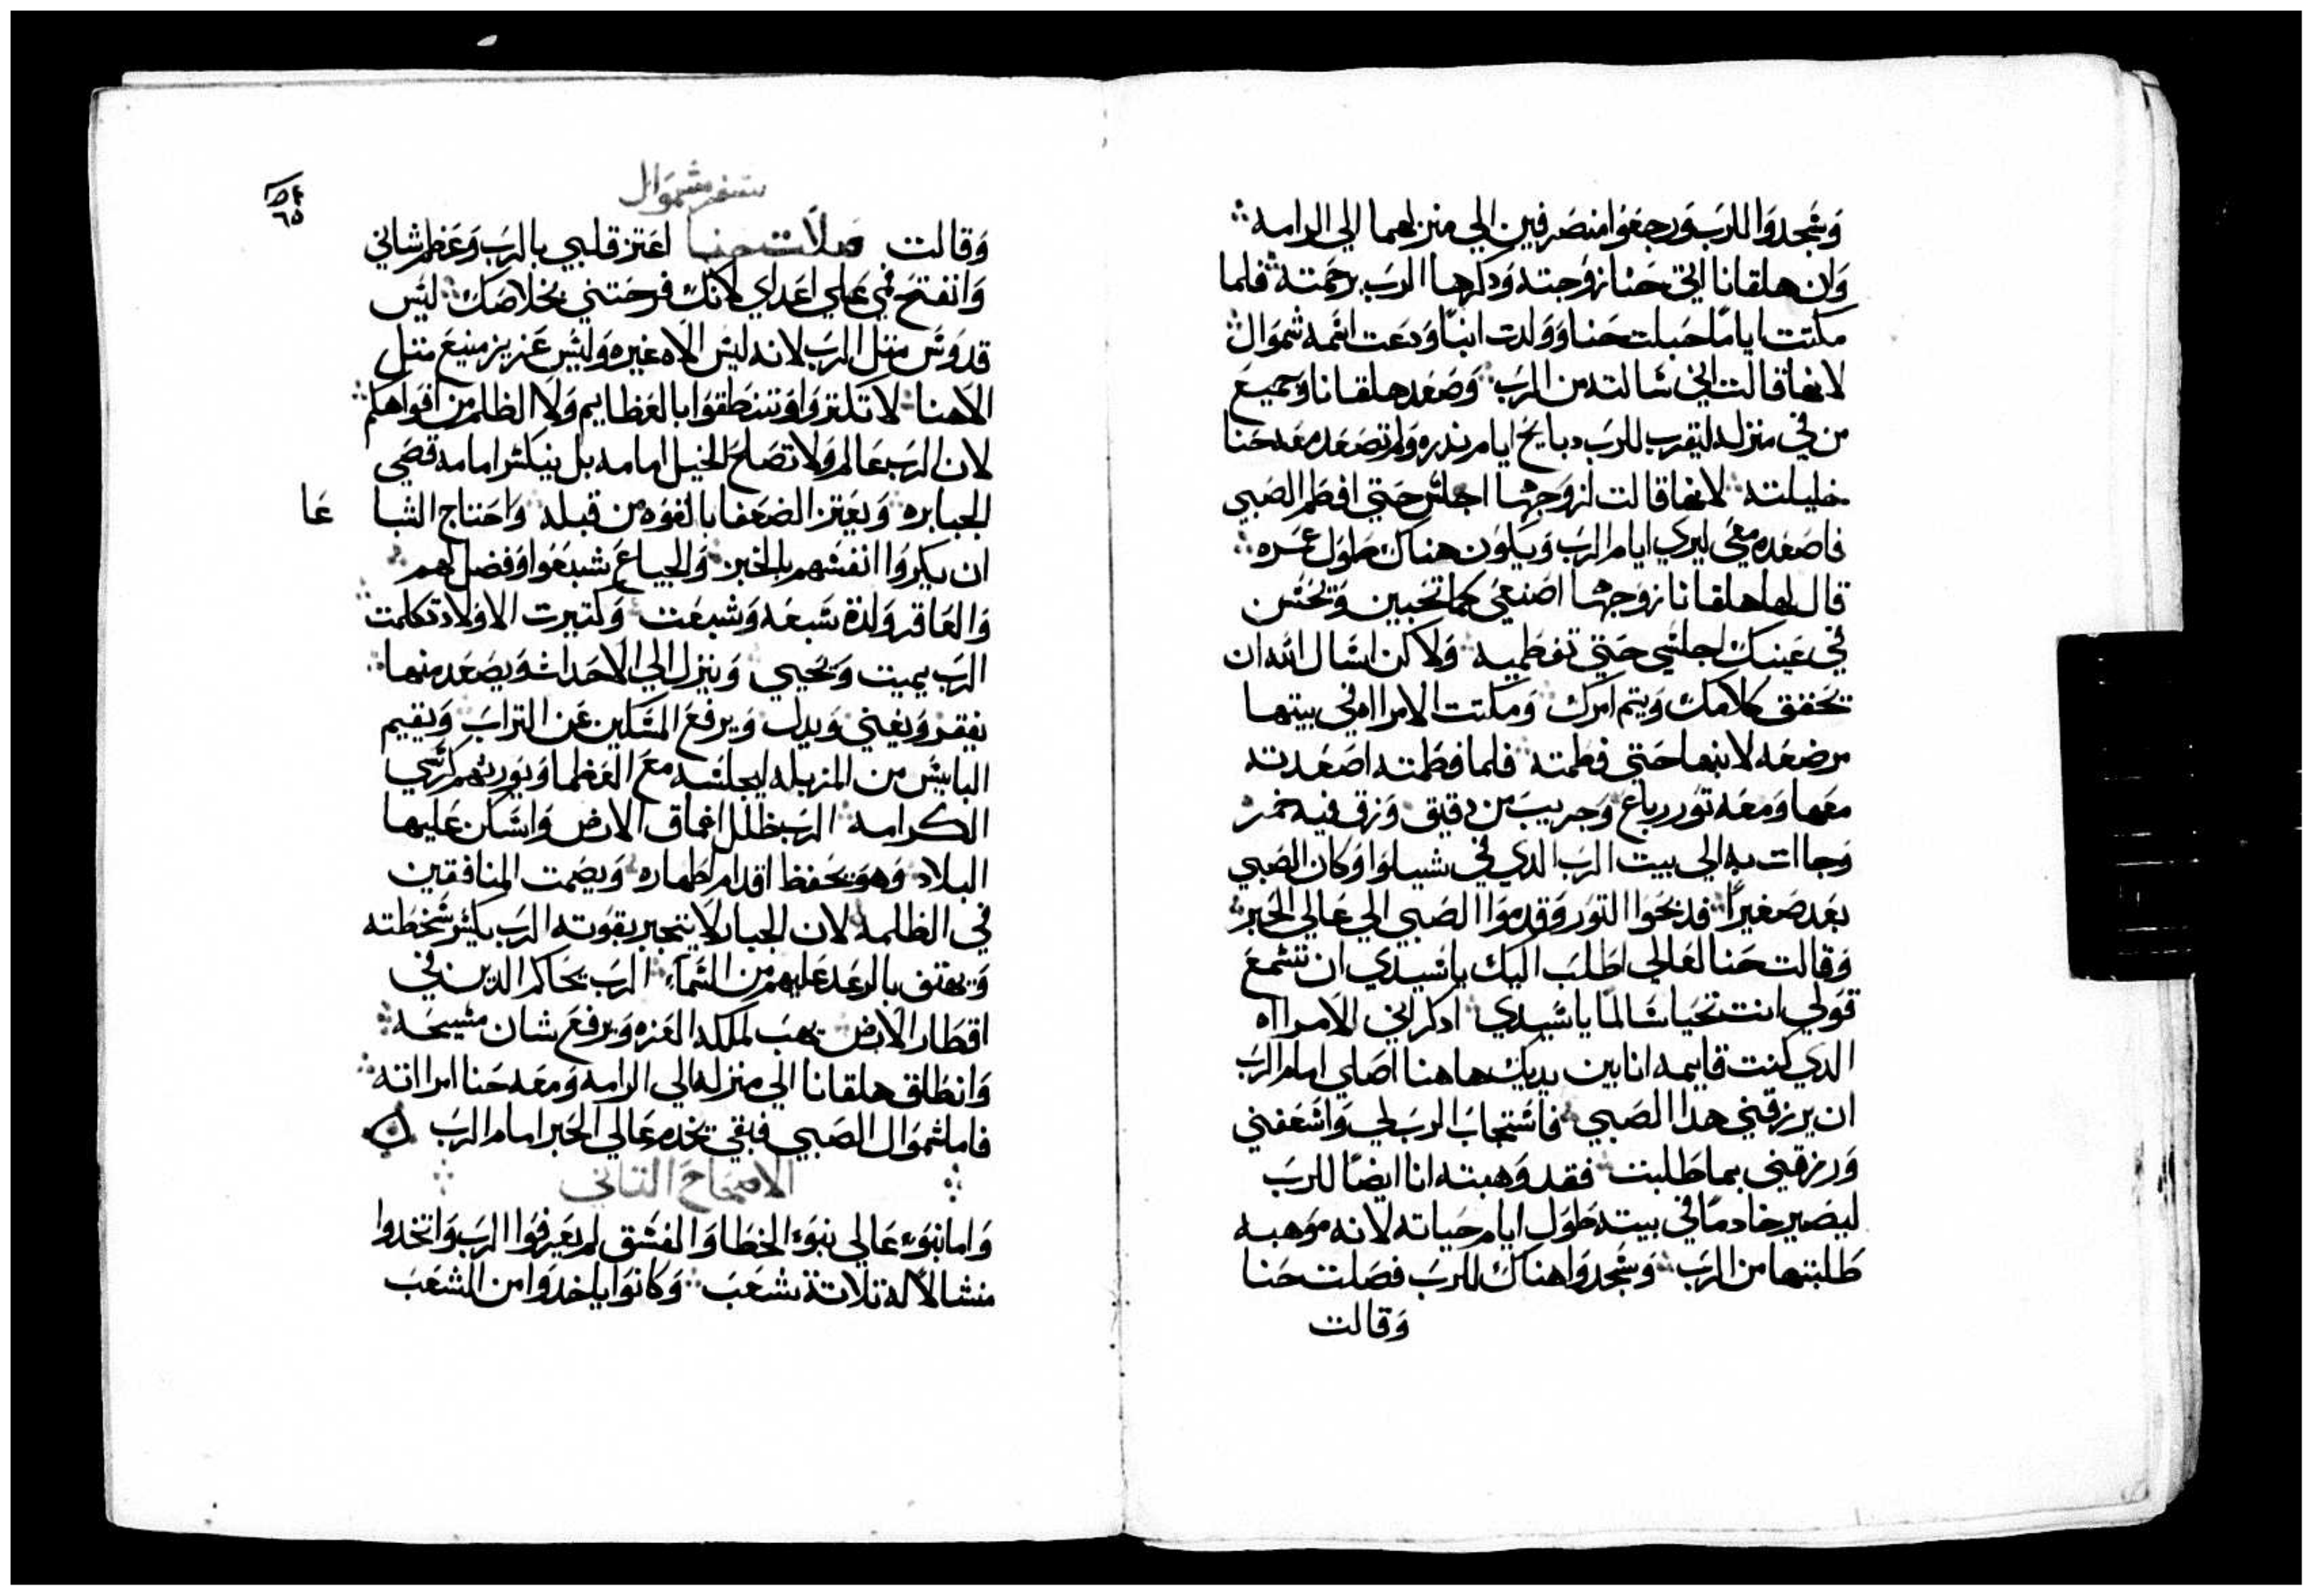 وسجدوا للرب ورجعوا منصرفين الي منزلهما الي الرامه
وان هلقانا اتي حنا زوجته ودكرها الرب برحمته فلما
مكتت اياما حبلت حنا وولدت ابنا ودعت اسمه شموال
لانها قالت اني سالته من الرب وصعد هلقانا وجميع
من في منزله ليقرب للرب دبايح ايام ندره ولم تصعد معه حنا
خليلته لانها قالت لزوجها اجلس حتي افطم الصبي
فاصعده معي ليري ايام الرب ويكون هناك طول عمره
قال لها هلقانا زوجها اصنعي كما تحبين وتحسن
في عينك اجلسي حتي تفطميه ولاكن اسال الله ان
يحقق كلامك ويتم امرك ومكتت الامراه في بيتها
مرضعه لابنها حتي فطمته فلما فطمته اصعدته
معها ومعه تور رباع وجريب من دقيق وزق فيه خمر
وجاات به الي بيت الرب الدي في شيلوا وكان الصبي
بعد صغيرا فدبحوا التور وقدموا الصبي الي عالي الحبر
وقالت حنا لعالي اطلب اليك ياسيدي ان تسمع
قولي انت تحيا سالما ياسيدي ادكر اني الامرااه
الدي كنت قايمه انا بين يديك هاهنا اصلي امام الرب
ان يرزقني هدا الصبي فاستجاب الرب لي واسعفني
ورزقني بما طلبت فقد وهبته انا ايضا للرب
ليصير خادما في بيته طول ايام حياته لانه موهبه
طلبتها من الرب وسجدوا هناك للرب فصلت حنا
وقالت
سفر شموال
٦٥
وقالت صلات حنا اعتز قلبي بالرب وعظم شاني
وانفتح فمي علي اعداي لانك فرحتني بخلاصك ليس
قدوس متل الرب لانه ليس الاه غيره وليس عزيز منيع متل
الاهنا لا تكتروا وتنطقوا بالعظايم ولا الظلم من افواهكم
لان الرب عالم ولا تصلح الحيل امامه بل ينكسر امامه قصي
الجبابره ويعتز الضعفا بالقوه من قبله واحتاج الشبا عا
ان يكروا انفسهم بالخبز والجياع شبعوا وفضل لهم
والعاقر ولدة سبعه وشبعت وكتيرت الاولاد تكلمت
الرب يميت ويحيي وينزل الي الاحداث ويصعد منها
يفقر ويغني ويدل ويرفع المسكين عن التراب ويقيم
البايس من المزبله ليجلسه مع العظما ويورتهم كرسي
الكرامه الرب ظلل اعماق الارض واسكن عليها
البلاد وهو يحفظ اقدام اطهاره ويصمت المنافقين
في الظلمه لان الجبار لا يتجبر بقوته الرب يكسر سخطته
ويهتف بالرعد عليهم من السماء الرب يحاكم الدين في
اقطار الارض يهب لملكه العزه ويرفع شان مسيحه
وانطلق هلقانا الي منزله الي الرامه ومعه حنا امرااته
فاما شموال الصبي فبقي يخدم عالي الحبر امام الرب
الاصحاح التاني
واما بنوء عالي بنوء الخطا والفسق لم يعرفوا الرب واتخدوا
منشالا له تلاتة شعب وكانوا ياخدوا من الشعب